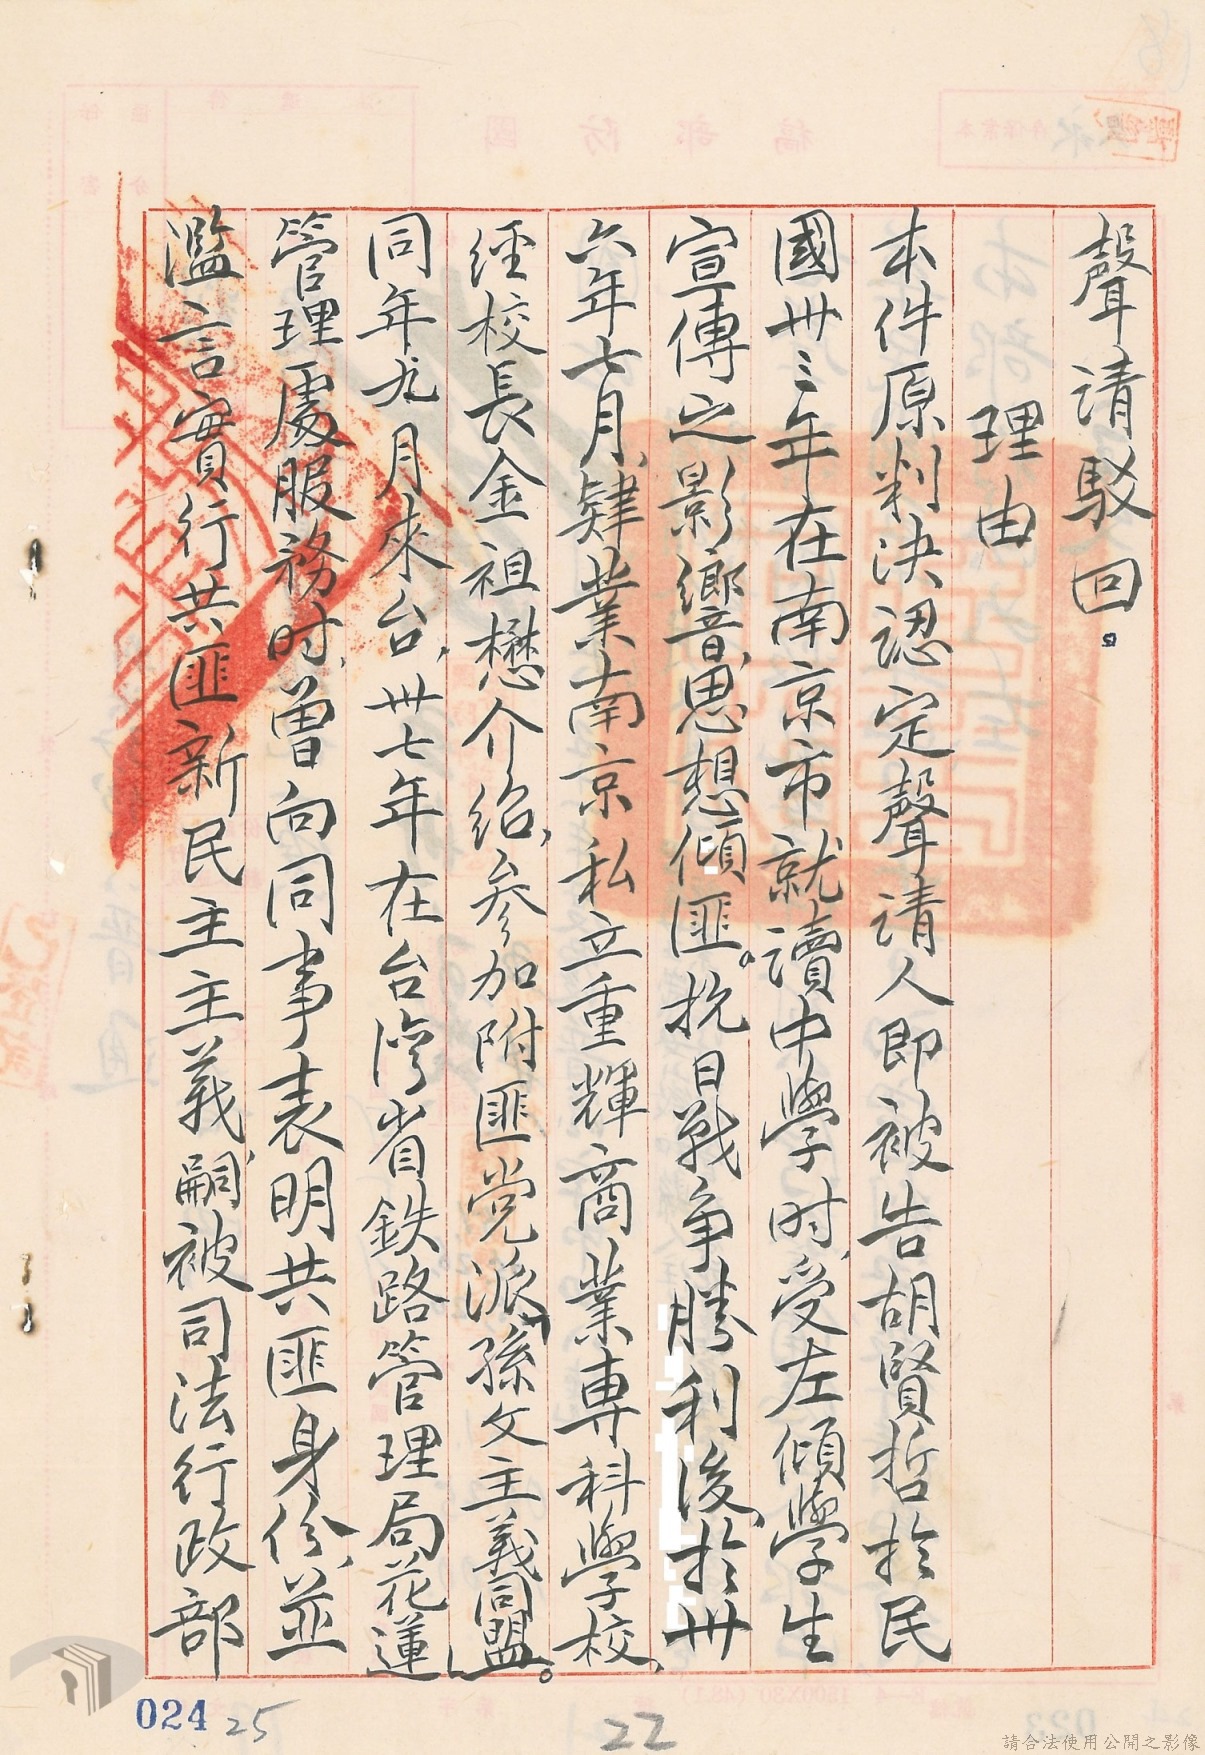 聲請駁回。
理由
本件原判決認定聲請人即被告胡賢哲於民
國卅三年在南京市就讀中學时,受左傾學生
宣傳之影響,思想傾匪。抗日戰爭勝利後,於卅
六年七月,肄業南京私立重輝商業専科學校,
經校長金祖懋介紹,參加附匪党派「孫文主義同盟」。
同年九月來台,卅七年在台湾省鉄路管理局花蓮
管理處服務时,曾向同事表明共匪身份,並
濫言實行共匪新民主主義,嗣被司法行政部
024
25
22
請合法使用公開之影像